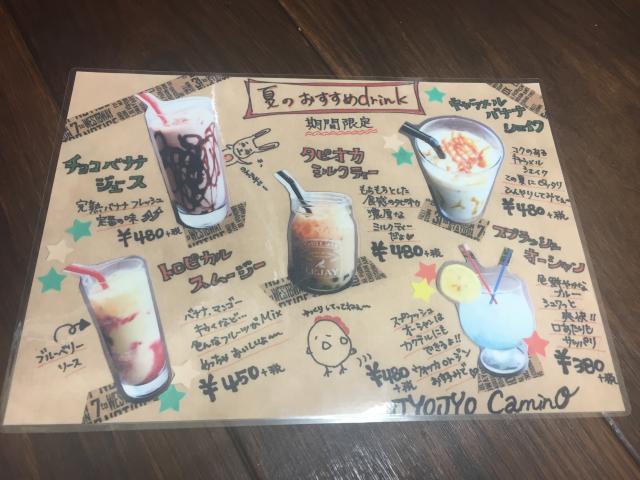 夏のおすすめdrink
期間限定
チョコバナナ
ジュース
完熟バナナフレッシュ
定番の味
¥480+税
タピオカ
ミルクティー
もちもちとした
食感のタピオカ
濃厚な
ミルクティー
¥480+税
キャラメル
バナナ
シェイク
コクのある
キャラメル
シェイク
この夏にピッタリ
ひんやりしてみてぇ〜
¥480+税
トロピカル
スムージー
バナナ、マンゴー
キウイなど…
そんなフルーツのMix
めっちゃおいしいよ〜
¥450+税
ブルーベリー
ソース
ゆっくりしてってねぇ〜
スプラッシュ
オーシャン
色鮮やかな
ブルー
シュワっと
爽快!!
口あたりも
サッパリ
¥380+税
スプラッシュ
オーシャンは
カクテルにも
できるよ!!
ウォッカ or ジン
お好みで♡
¥480+税
JYOJYO Camino
WESTBAM